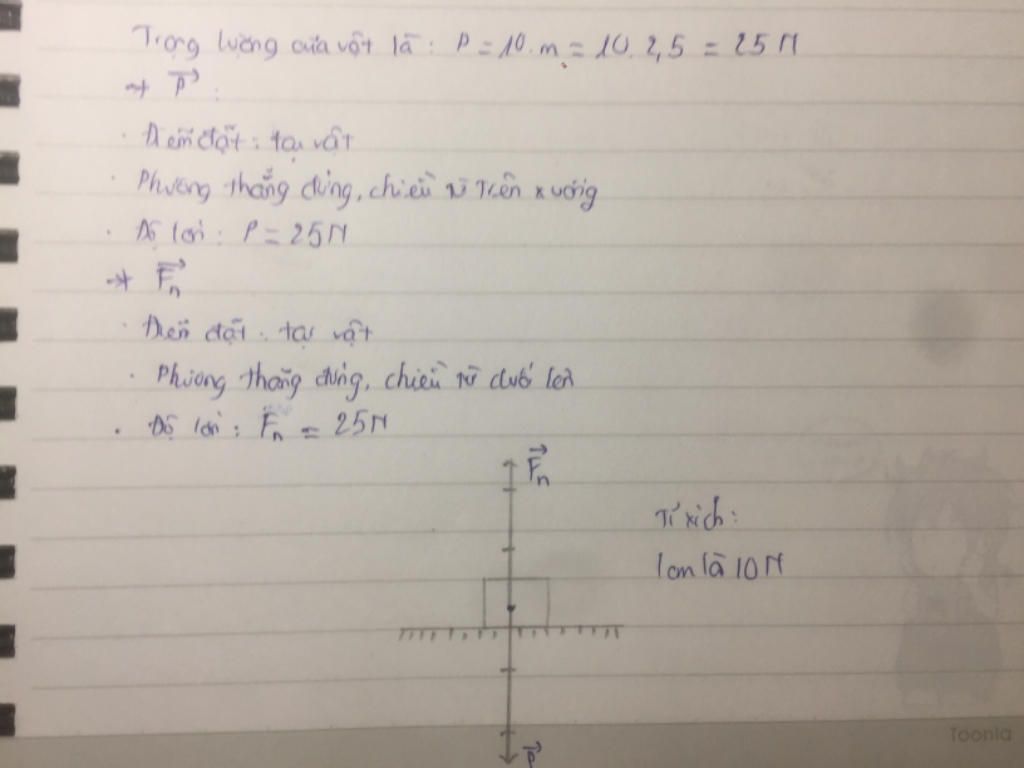 Trọng lượng của vật là: P = 10.m = 10.2,5 = 25N
→ P⃗ :
· Điểm đặt: tại vật
· Phương thẳng đứng, chiều từ trên xuống
· Độ lớn: P = 25N
→ F⃗n
· Điểm đặt: tại vật
· Phương thẳng đứng, chiều từ dưới lên
· Độ lớn: Fn = 25N
F⃗n
Tỉ xích:
1cm là 10N
P⃗
Toonla